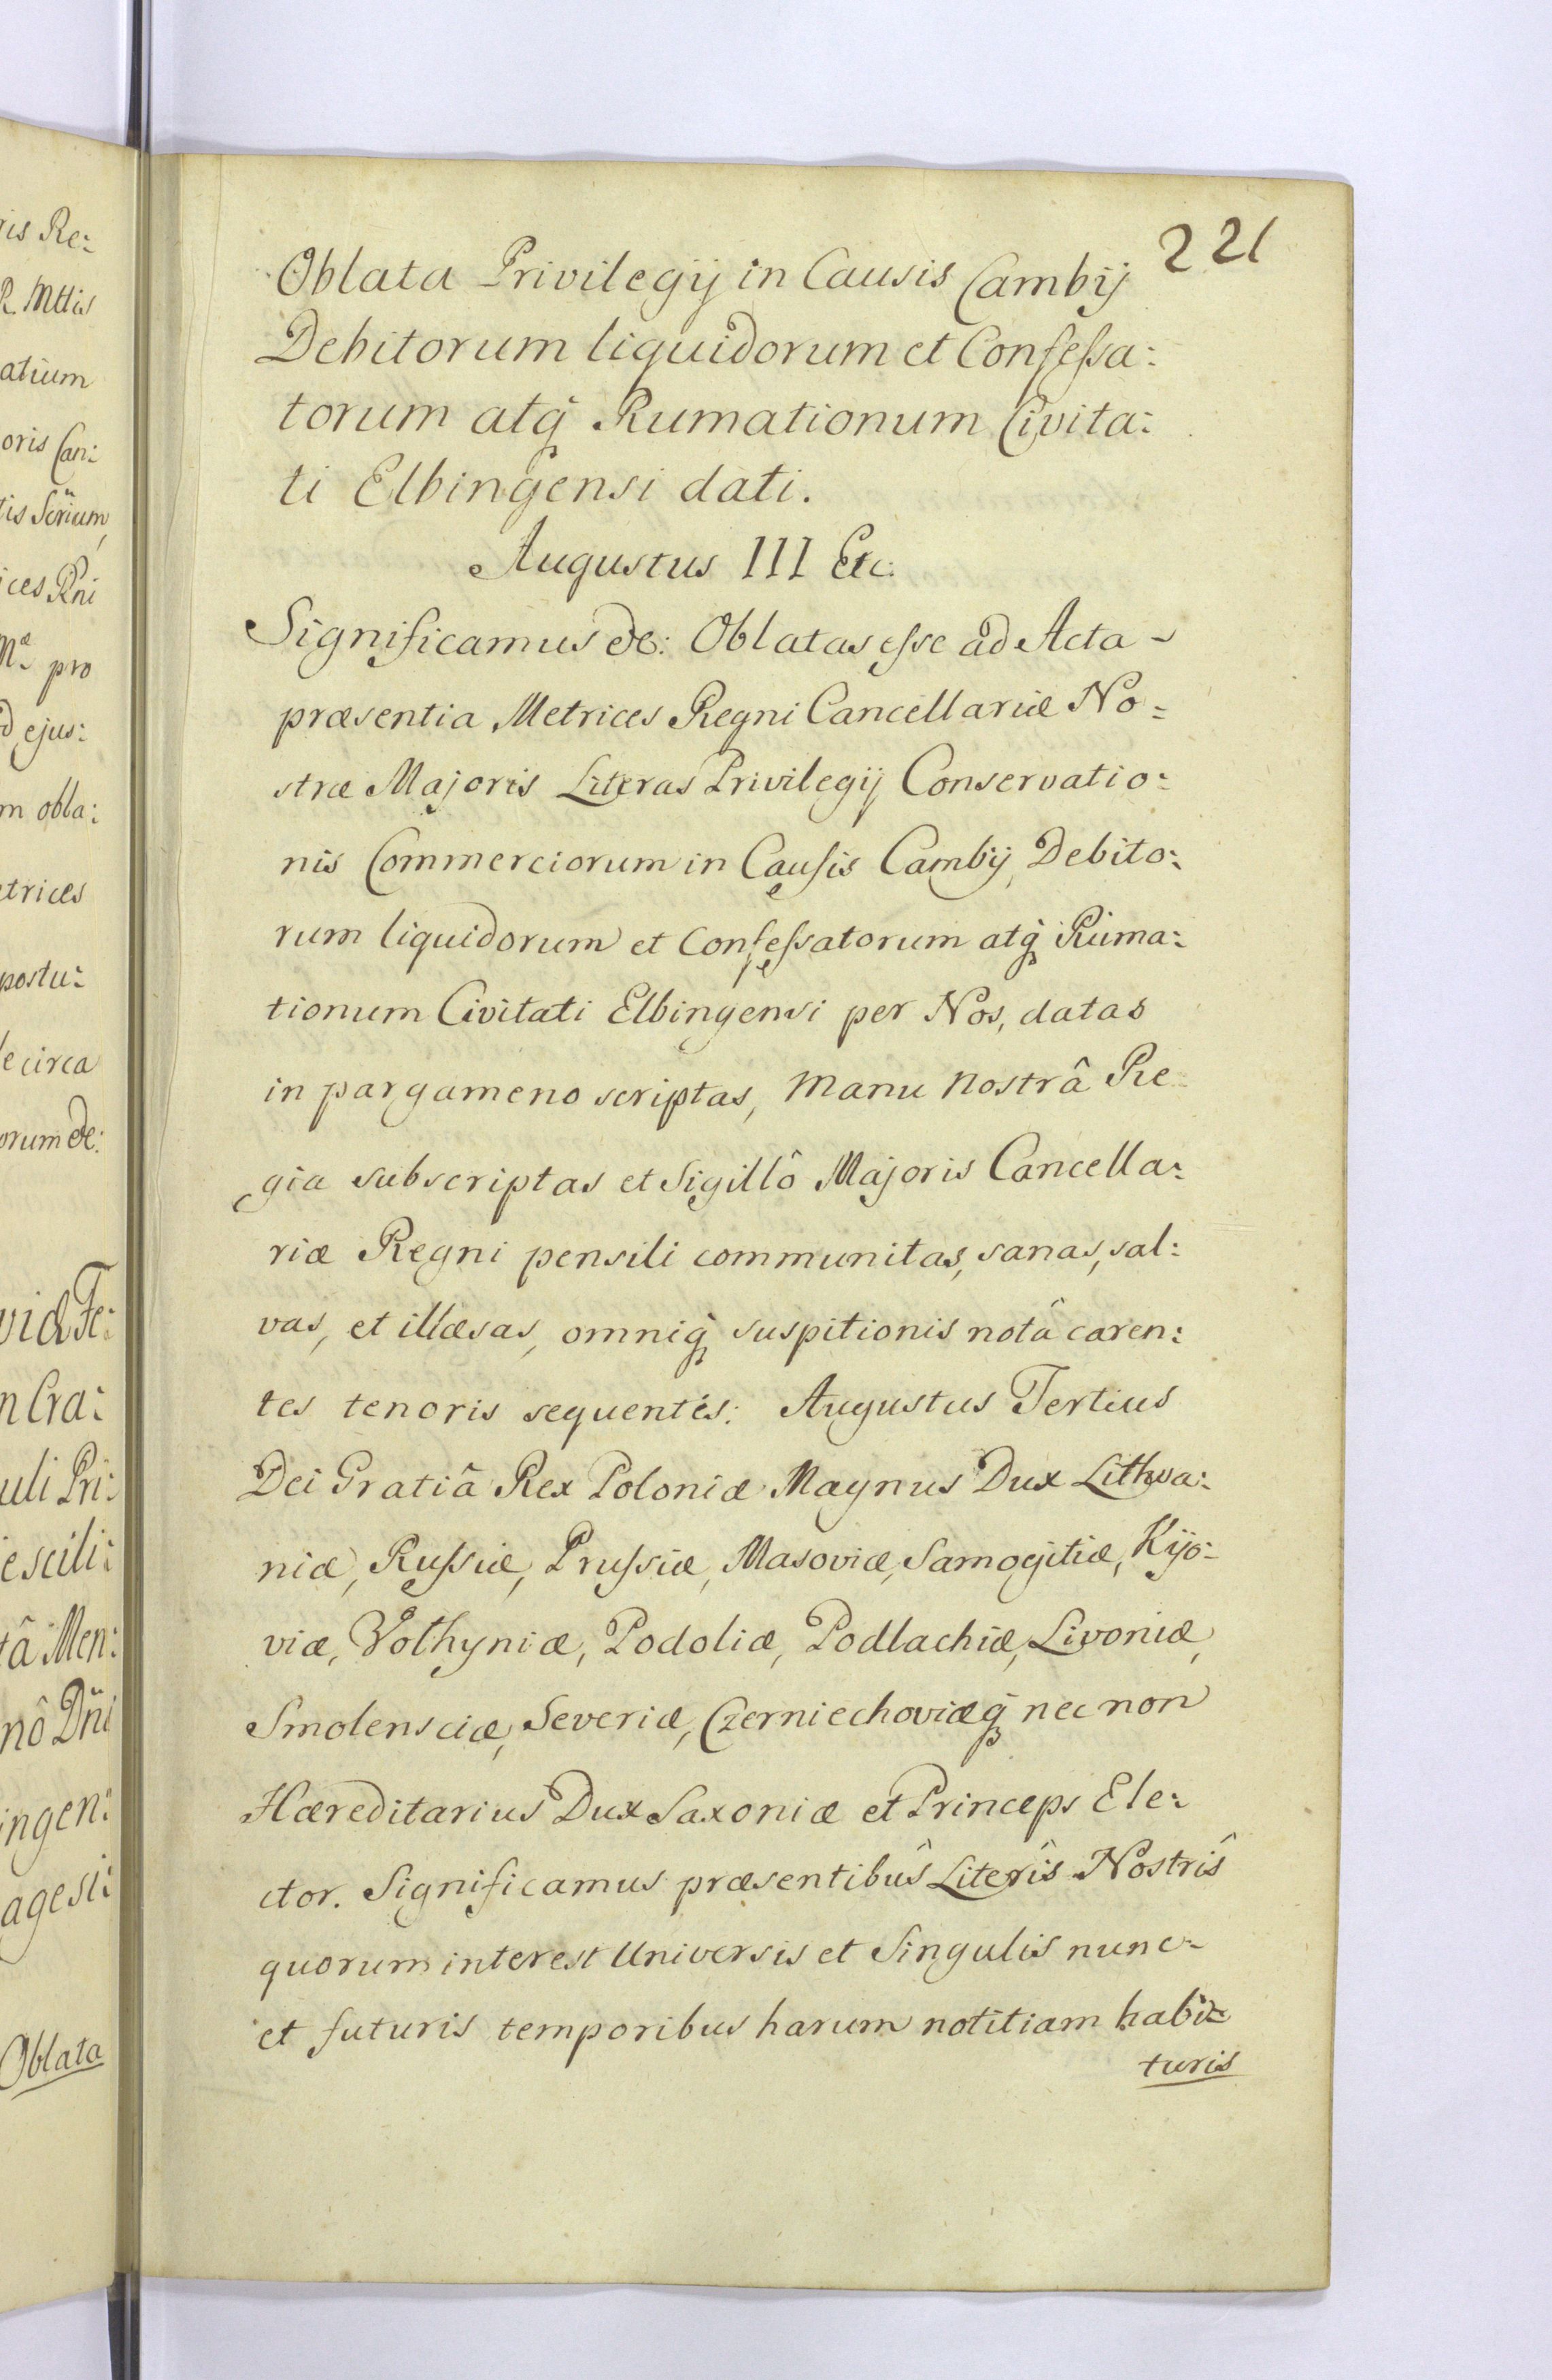 221
Oblata Privilegij in Causis Cambij
Debitorum liquidorum et Confeſsa:
torum atq́ Rumationum Civita:
ti Elbingensi dati.
Augustus III Etc.
Significamus &c: Oblatas eſse ad Acta -
præsentia Metrices Regni Cancellariæ No:
stræ Majoris Literas Privilegij Conservatio:
nis Commerciorum in Cauſis Cambij, Debito:
rum liquidorum et Confeſsatorum atq́ Ruma:
tionum Civitati Elbingensi per Nos, datas
in pargameno scriptas, Manu Nostrâ Re
gia subscriptas et Sigillô Majoris Cancella:
riæ Regni pensili communitas, sanas, sal:
vas, et illæsas, omniq́ suspitionis notâ caren:
tes tenoris sequentis: Augustus Tertius
Dei Gratiâ Rex Poloniæ Magnus Dux Lithva:
niæ, Ruſsiæ, Pruſsiæ, Masoviæ, Samogitiæ, Kijo-
viæ, Volhyniæ, Podoliæ, Podlachiæ, Livoniæ,
Smolensciæ, Severiæ, Czerniechoviæq́ nec non
Hæreditarius Dux Saxoniæ et Princeps Ele:
ctor. Significamus præsentibûs Literîs Nostrîs
quorum interest Universis et Singulis nunc-
et futuris temporibus harum notitiam habi:
turis
ris Re:
R. Mttis
atium
oris Can:
tis Scrium,
ices Rni
pro
d ejus:
m obla:
etrices
postu:
le circa
orum &c:
m Cra:
uli Pri:
e scili:
tâ Men:
nô Dñi
ingen:
agesi:
Oblata